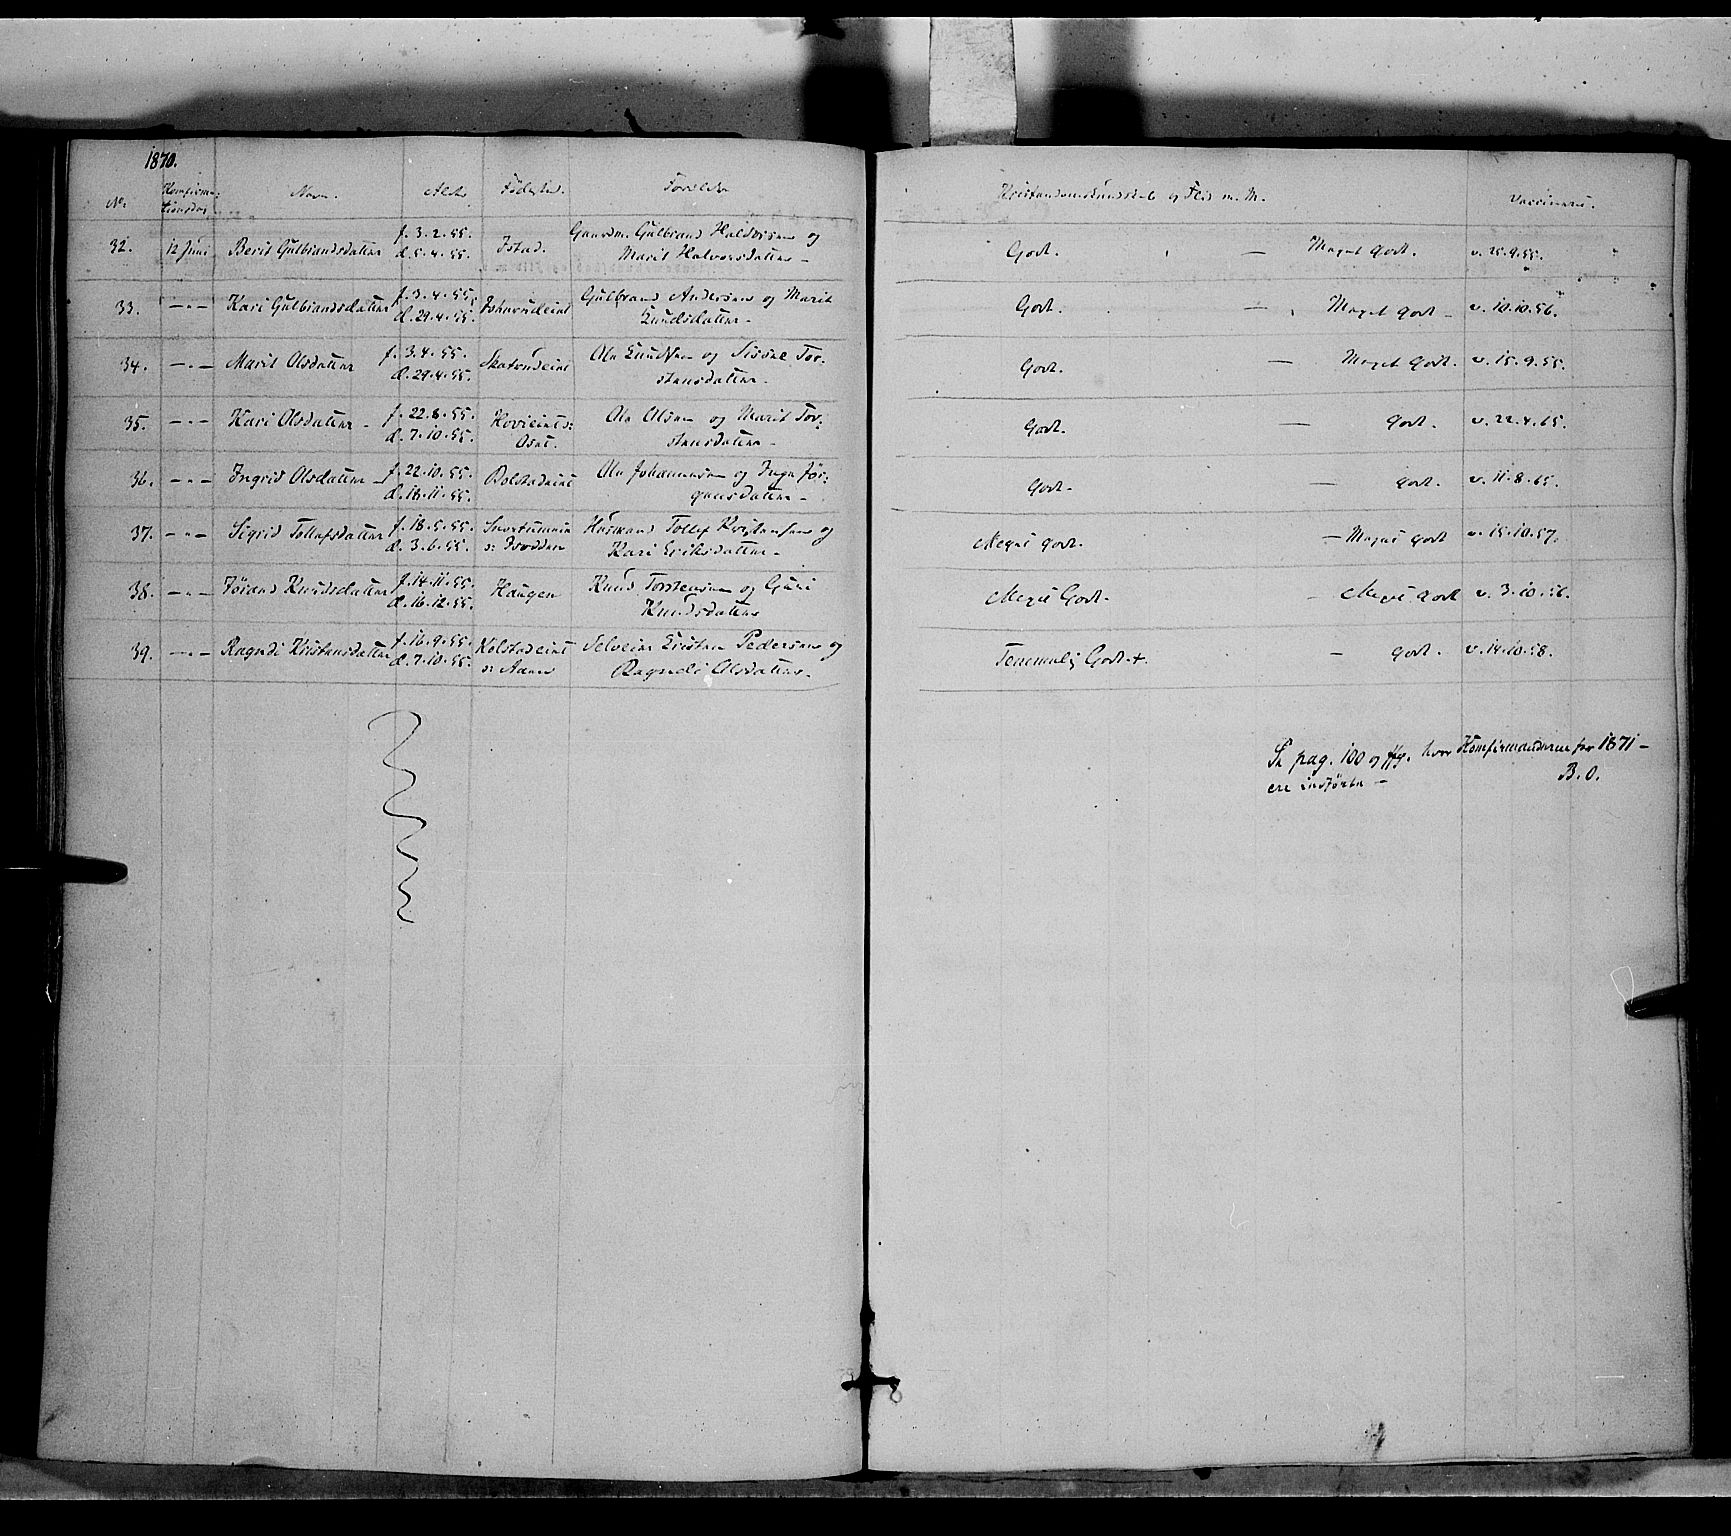 1870.
No. Konfirma- Navn. Alder Födested. Forældre Kristendomskundskab og Flid m. M. Vaccineret.
tionsdag
32. 12 Juni Berit Gulbrandsdatter f. 3.2.55. Istad. Gaardm. Gulbrand Haldorsen og Godt. — Meget godt. v. 25.9.55.
d. 5.4.55. Marit Halvorsdatter –
33. – " – Kari Gulbrandsdatter f. 3.4.55. Gulbrand Andersen og Marit Godt. — Meget godt – v. 10.10.56.
d. 29.4.55. Knudsdatter –
34. – " – Marit Olsdatter f. 3.4.55. Skatrudeint Ole Knudsen og Sissel Tor- Godt. — Meget godt. v. 15.9.55.
d. 29.4.55. stensdatter –
35. – " – Kari Olsdatter – f. 22.8.55. Ole Olsen og Marit Tor- Godt. — godt. v. 22.4.65.
d. 7.10.55. stensdatter –
36. – " – Ingrid Olsdatter – f. 22.10.55. Bolstadeint Ole Johannesen og Inga Jör- Godt – — godt. v. 11.8.65.
d. 18.11.55. gensdatter –
37. – " – Sigrid Tollefsdatter f. 18.5.55. Husmand Tollef Kristensen og Meget godt. – Meget godt v. 15.10.57.
d. 3.6.55. Kari Eriksdatter –
38. – " – Jörand Knudsdatter f. 14.11.55. Haugen Knud Torstensen og Guri Meget Godt – – Meget godt v. 3.10.56.
d. 16.12.55. Knudsdatter
39. – " – Ragndi Kristensdatter f. 16.9.55. Kolstadeint Selveier Kristen Pedersen og Temmelig Godt + – godt. v. 14.10.58.
d. 7.10.55. Ragndi Olsdatter –
Se pag. 100 og ffg. hvor Konfirmanderne for 1871 –
ere indförte – B. O.